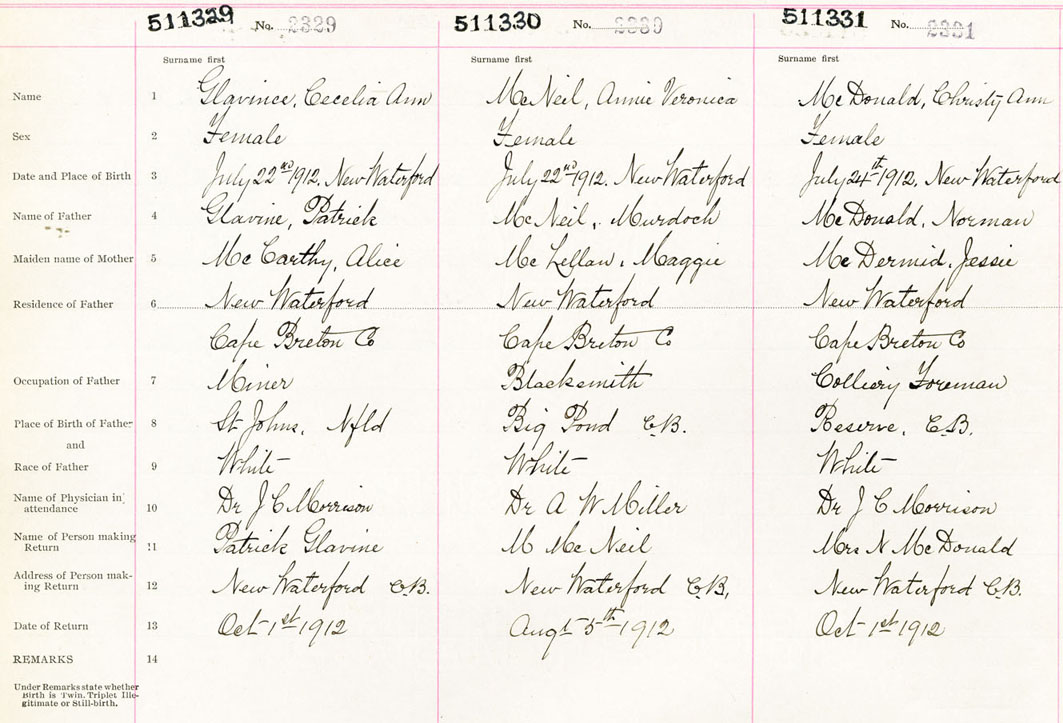 511329 No. 2329 511330 No. 2330 511331 No. 2331
Surname first Surname first Surname first
Name 1 Glavince, Cecelia Ann McNeil, Annie Veronica McDonald, Christy Ann
Sex 2 Female Female Female
Date and Place of Birth 3 July 22nd 1912. New Waterford July 22nd 1912. New Waterford July 24th 1912. New Waterford
Name of Father 4 Glavine, Patrick McNeil, Murdoch McDonald, Norman
Maiden name of Mother 5 McCarthy, Alice McLellan, Maggie McDermid, Jessie
Residence of Father 6 New Waterford New Waterford New Waterford
Cape Breton Co Cape Breton Co Cape Breton Co
Occupation of Father 7 Miner Blacksmith Colliery Foreman
Place of Birth of Father 8 St Johns, Nfld Big Pond C.B. Reserve, C.B.
and
Race of Father 9 White White White
Name of Physician in attendance 10 Dr J C Morrison Dr A W Miller Dr J C Morrison
Name of Person making Return 11 Patrick Glavine M McNeil Mrs N McDonald
Address of Person mak-
ing Return 12 New Waterford C.B. New Waterford C.B, New Waterford C.B.
Date of Return 13 Oct 1st 1912 Augt 5th 1912 Oct 1st 1912
REMARKS 14
Under Remarks state whether
Birth is Twin. Triplet Ille-
gitimate or Still-birth.